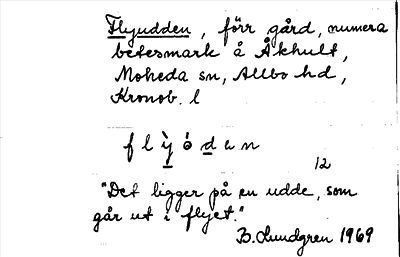 Flyudden, förr gård, numera
betesmark å Åkhult,
Moheda sn, Allbo hd,
Kronob. l
flỳódan
12
"Det ligger på en udde, som
går ut i flyet."
B. Lundgren 1969